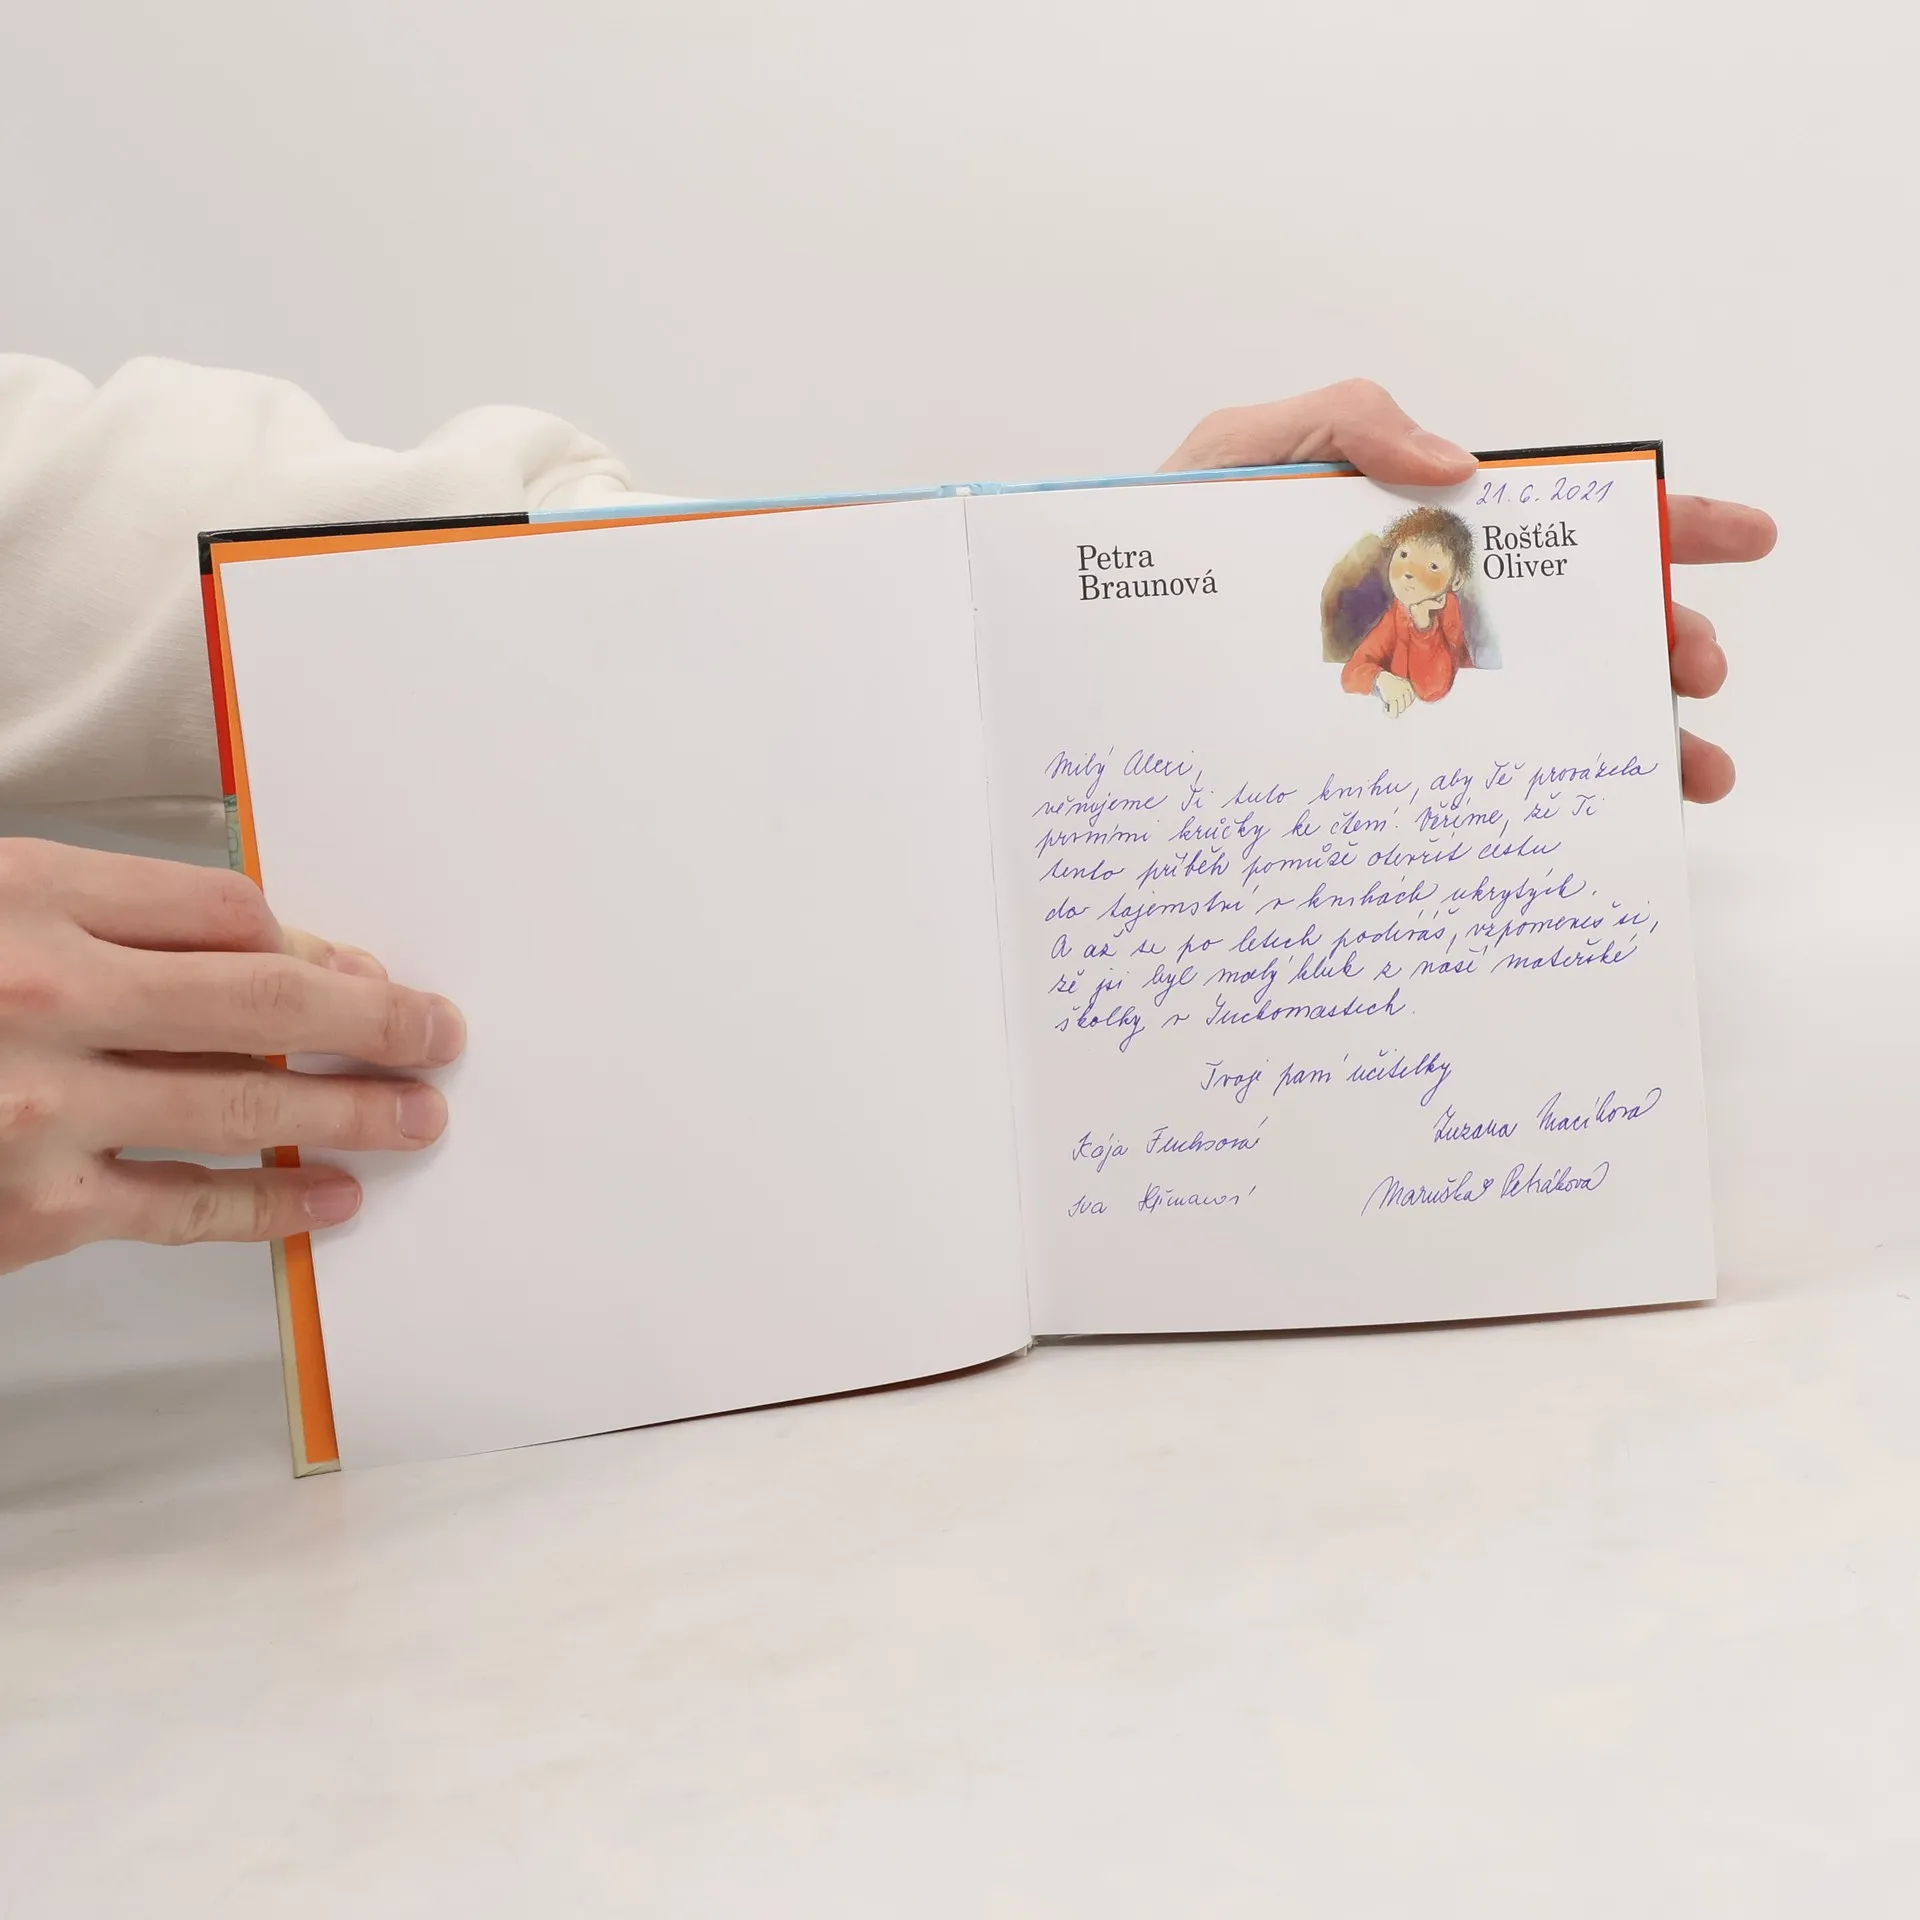 21. 6. 2021
Petra
Braunová
Rošťák
Oliver
Milý Alexi,
věnujeme Ti tuto knihu, aby Tě provázela
prvními krůčky ke čtení. Věříme, že Ti
tento příběh pomůže otevřít cestu
do tajemství v knihách ukrytých.
A až se po letech podíváš, vzpomeneš si,
že jsi byl malý kluk z naší mateřské
školky v Suchomastech.
Tvoje paní učitelky
Zuzana Macíková
Kája Fuchsová
Maruška Petráková
Iva